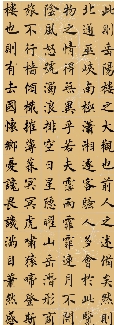 此則岳陽樓之大觀也前人之述備矣然則
北通巫峽南極瀟湘遷客騷人多會於此覽
物之情得無異乎若夫霪雨霏霏連月不開
陰風怒號濁浪排空日星隱曜山岳潛形商
旅不行檣傾楫摧薄暮冥冥虎嘯猿啼登斯
樓也則有去國懷鄉憂讒畏譏滿目蕭然感